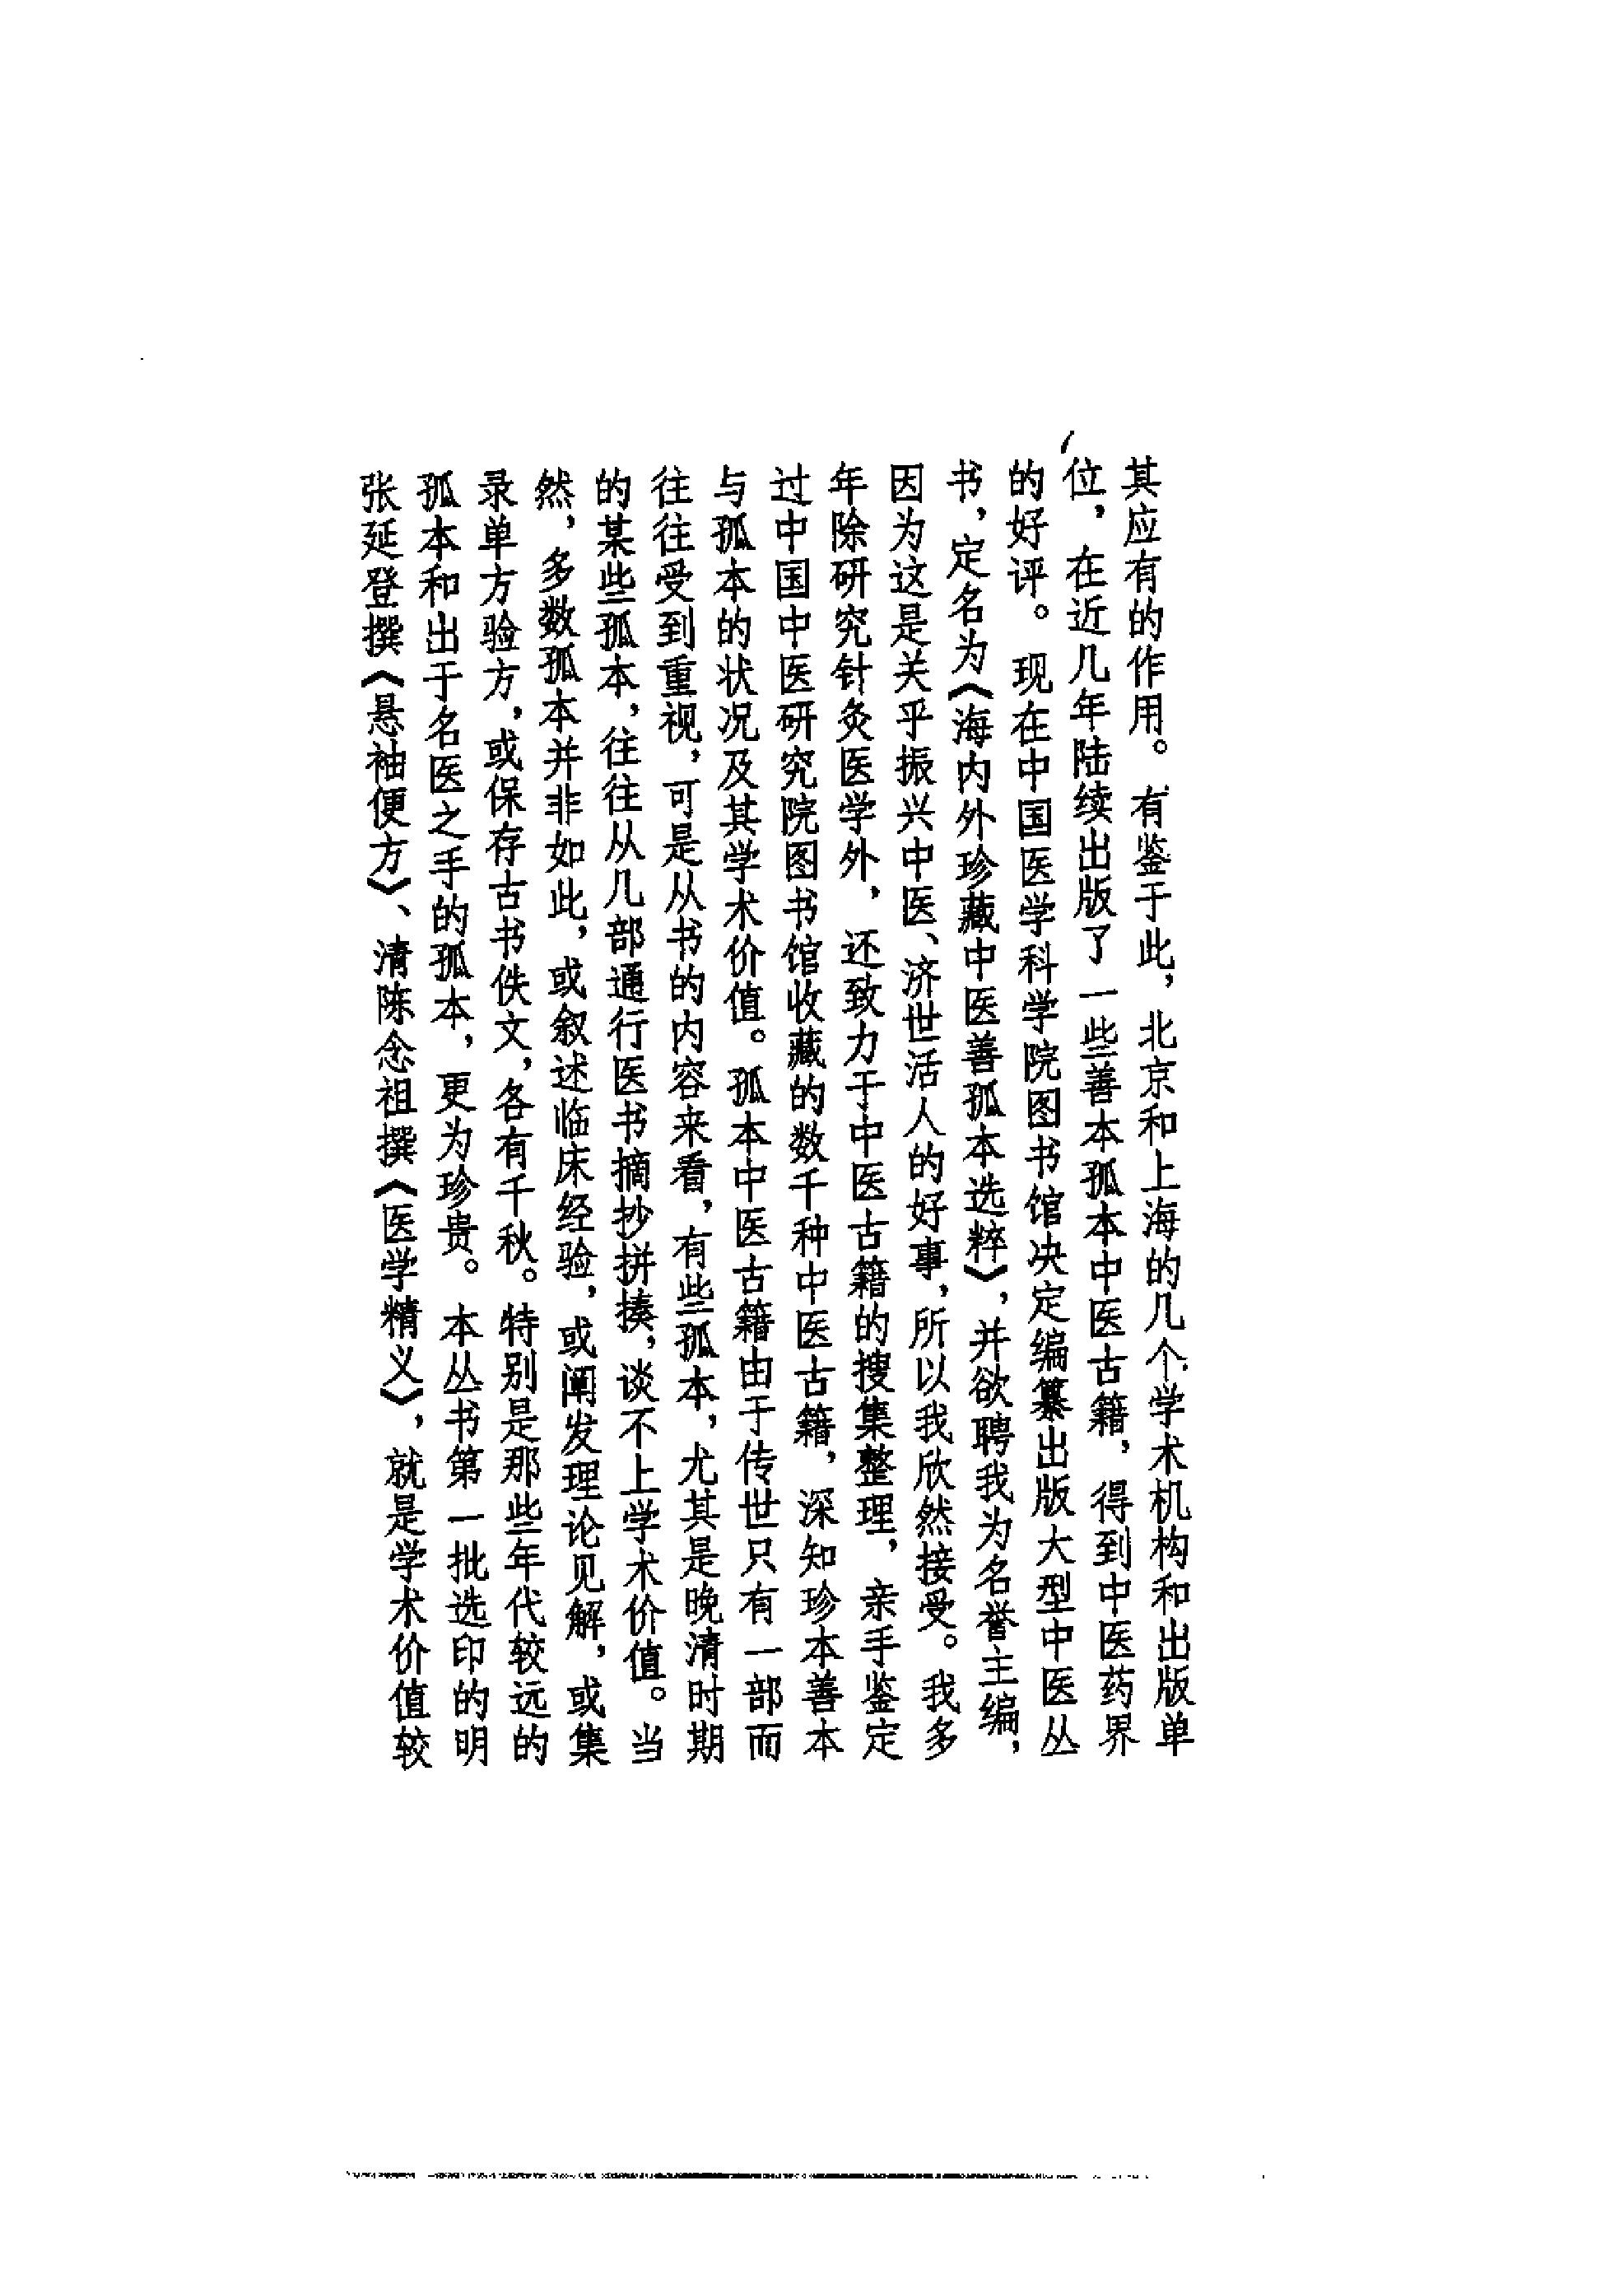 其应有的作用。有鉴于此，北京和上海的几个学术机构和出版单
位，在近几年陆续出版了一些善本孤本中医古籍，得到中医药界
的好评。现在中国医学科学院图书馆决定编纂出版大型中医丛
书，定名为《海内外珍藏中医善孤本选粹》，并欲聘我为名誉主编，
因为这是关乎振兴中医、济世活人的好事，所以我欣然接受。我多
年除研究针灸医学外，还致力于中医古籍的搜集整理，亲手鉴定
过中国中医研究院图书馆收藏的数千种中医古籍，深知珍本善本
与孤本的状况及其学术价值。孤本中医古籍由于传世只有一部而
往往受到重视，可是从书的内容来看，有些孤本，尤其是晚清时期
的某些孤本，往往从几部通行医书摘抄拼揍，谈不上学术价值。当
然，多数孤本并非如此，或叙述临床经验，或阐发理论见解，或集
录单方验方，或保存古书佚文，各有千秋。特别是那些年代较远的
孤本和出于名医之手的孤本，更为珍贵。本丛书第一批选印的明
张延登撰《悬袖便方》、清陈念祖撰《医学精义》，就是学术价值较